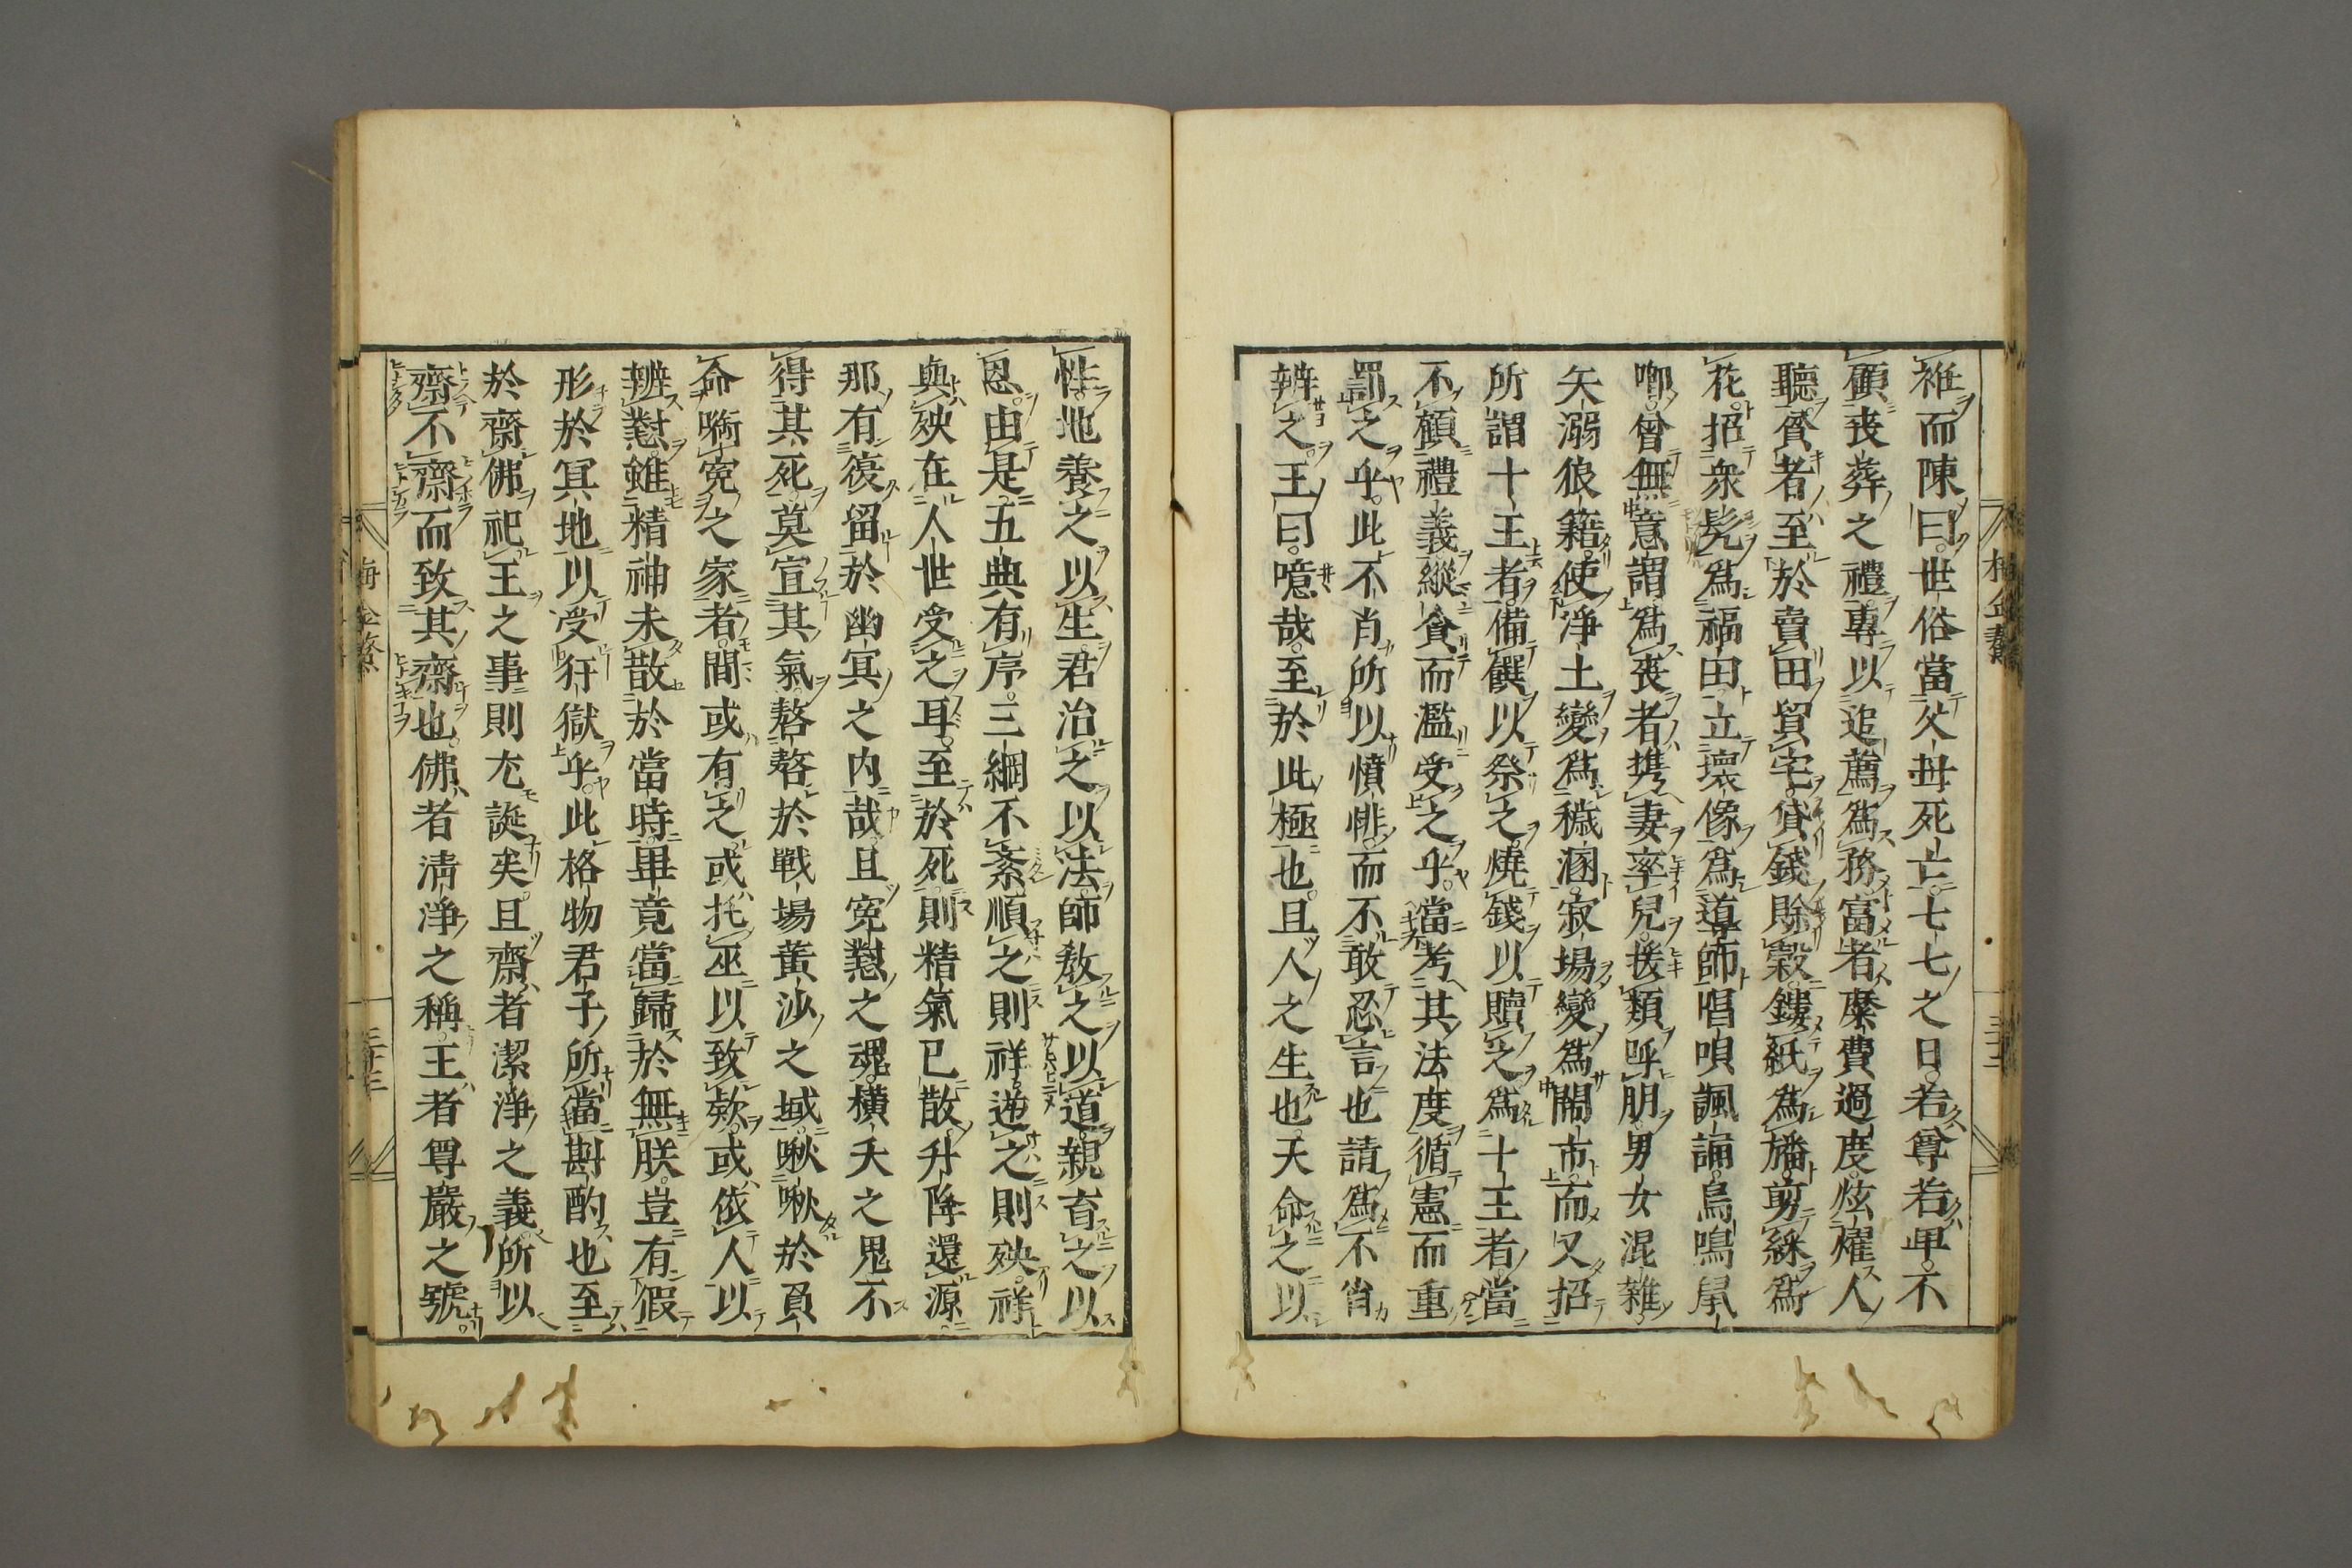 袵而陳曰世俗當父母死亡七七之日若尊若卑不
顧喪葬之禮專以追薦爲務富者糜費過度炫燿人
聽貧者至於賣田貿宅貸錢賒穀鏤紙爲旛剪綵爲
花招衆髡爲福田立壞像爲導師唱唄諷誦烏鳴鼠
喞曾無意謂爲喪者携妻率兒援類呼朋男女混雜
矢溺狼籍使淨土變爲穢溷寂場變爲閙市而又招
所謂十王者備饌以祭之燒錢以贖之爲十王者當
不顧禮義縱貪而濫受之乎當考其法度循憲而重
罰之乎此不肖所以憤悱而不敢忍言也請爲不肖
辨之王曰噫哉至於此極也且人之生也天命之以
性地養之以生君治之以法師敎之以道親育之以
恩由是五典有序三綱不紊順之則祥逆之則殃祥
與殃在人世受之耳至於死則精氣已散升降還源
那有復留於幽冥之内哉且寃懟之魂橫夭之鬼不
得其死莫宣其氣嗸嗸於戰場黃沙之域啾啾於負
命啣寃之家者間或有之或托巫以致欵或依人以
辨懟雖精神未散於當時畢竟當歸於無朕豈有假
形於冥地以受犴獄乎此格物君子所當斟酌也至
於齋佛祀王之事則尤誕矣且齋者潔淨之義所以
齋不齋而致其齋也佛者淸淨之稱王者尊嚴之號